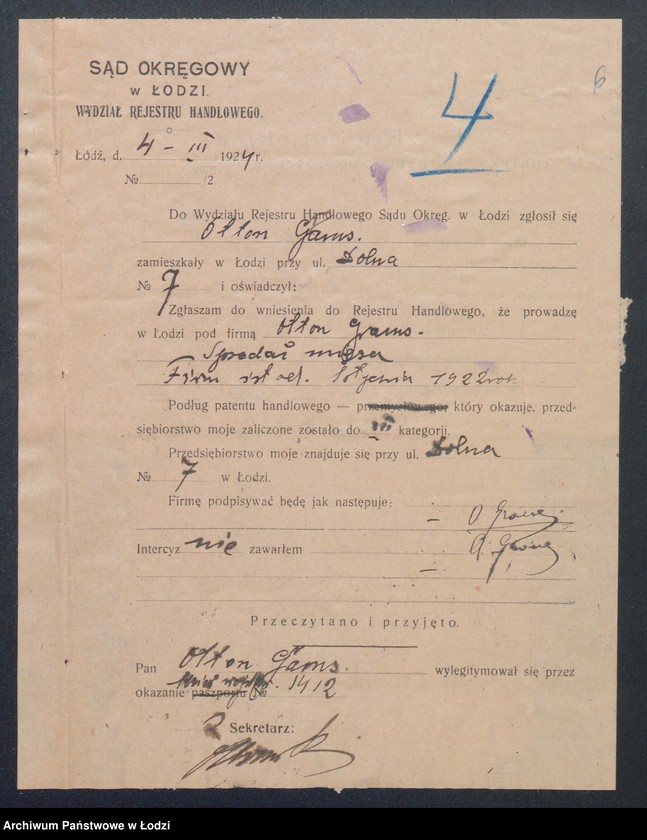 6
4
SĄD OKRĘGOWY
w ŁODZI.
WYDZIAŁ REJESTRU HANDLOWEGO.
Łódź, d. 4 - III 1924 r.
№ /2
Do Wydziału Rejestru Handlowego Sądu Okręg. w Łodzi zgłosił się
Otton Gams.
zamieszkały w Łodzi przy ul. Dolna
№ 7 i oświadczył:
Zgłaszam do wniesienia do Rejestru Handlowego, że prowadzę
w Łodzi pod firmą Otton Grams.
Spredaż mięsa
Firm ist od. 1 stycznia 1922 rok
Podług patentu handlowego — przemysłowego, który okazuje, przed-
siębiorstwo moje zaliczone zostało do III kategorji.
Przedsiębiorstwo moje znajduje się przy ul. Dolna
№ 7 w Łodzi.
Firmę podpisywać będę jak następuje:
— O Grams.
Intercyz nie zawarłem
—
Przeczytano i przyjęto.
Pan Otton Gams. wylegitymował się przez
okazanie paszportu № 1412
Sekretarz:
Archiwum Państwowe w Łodzi